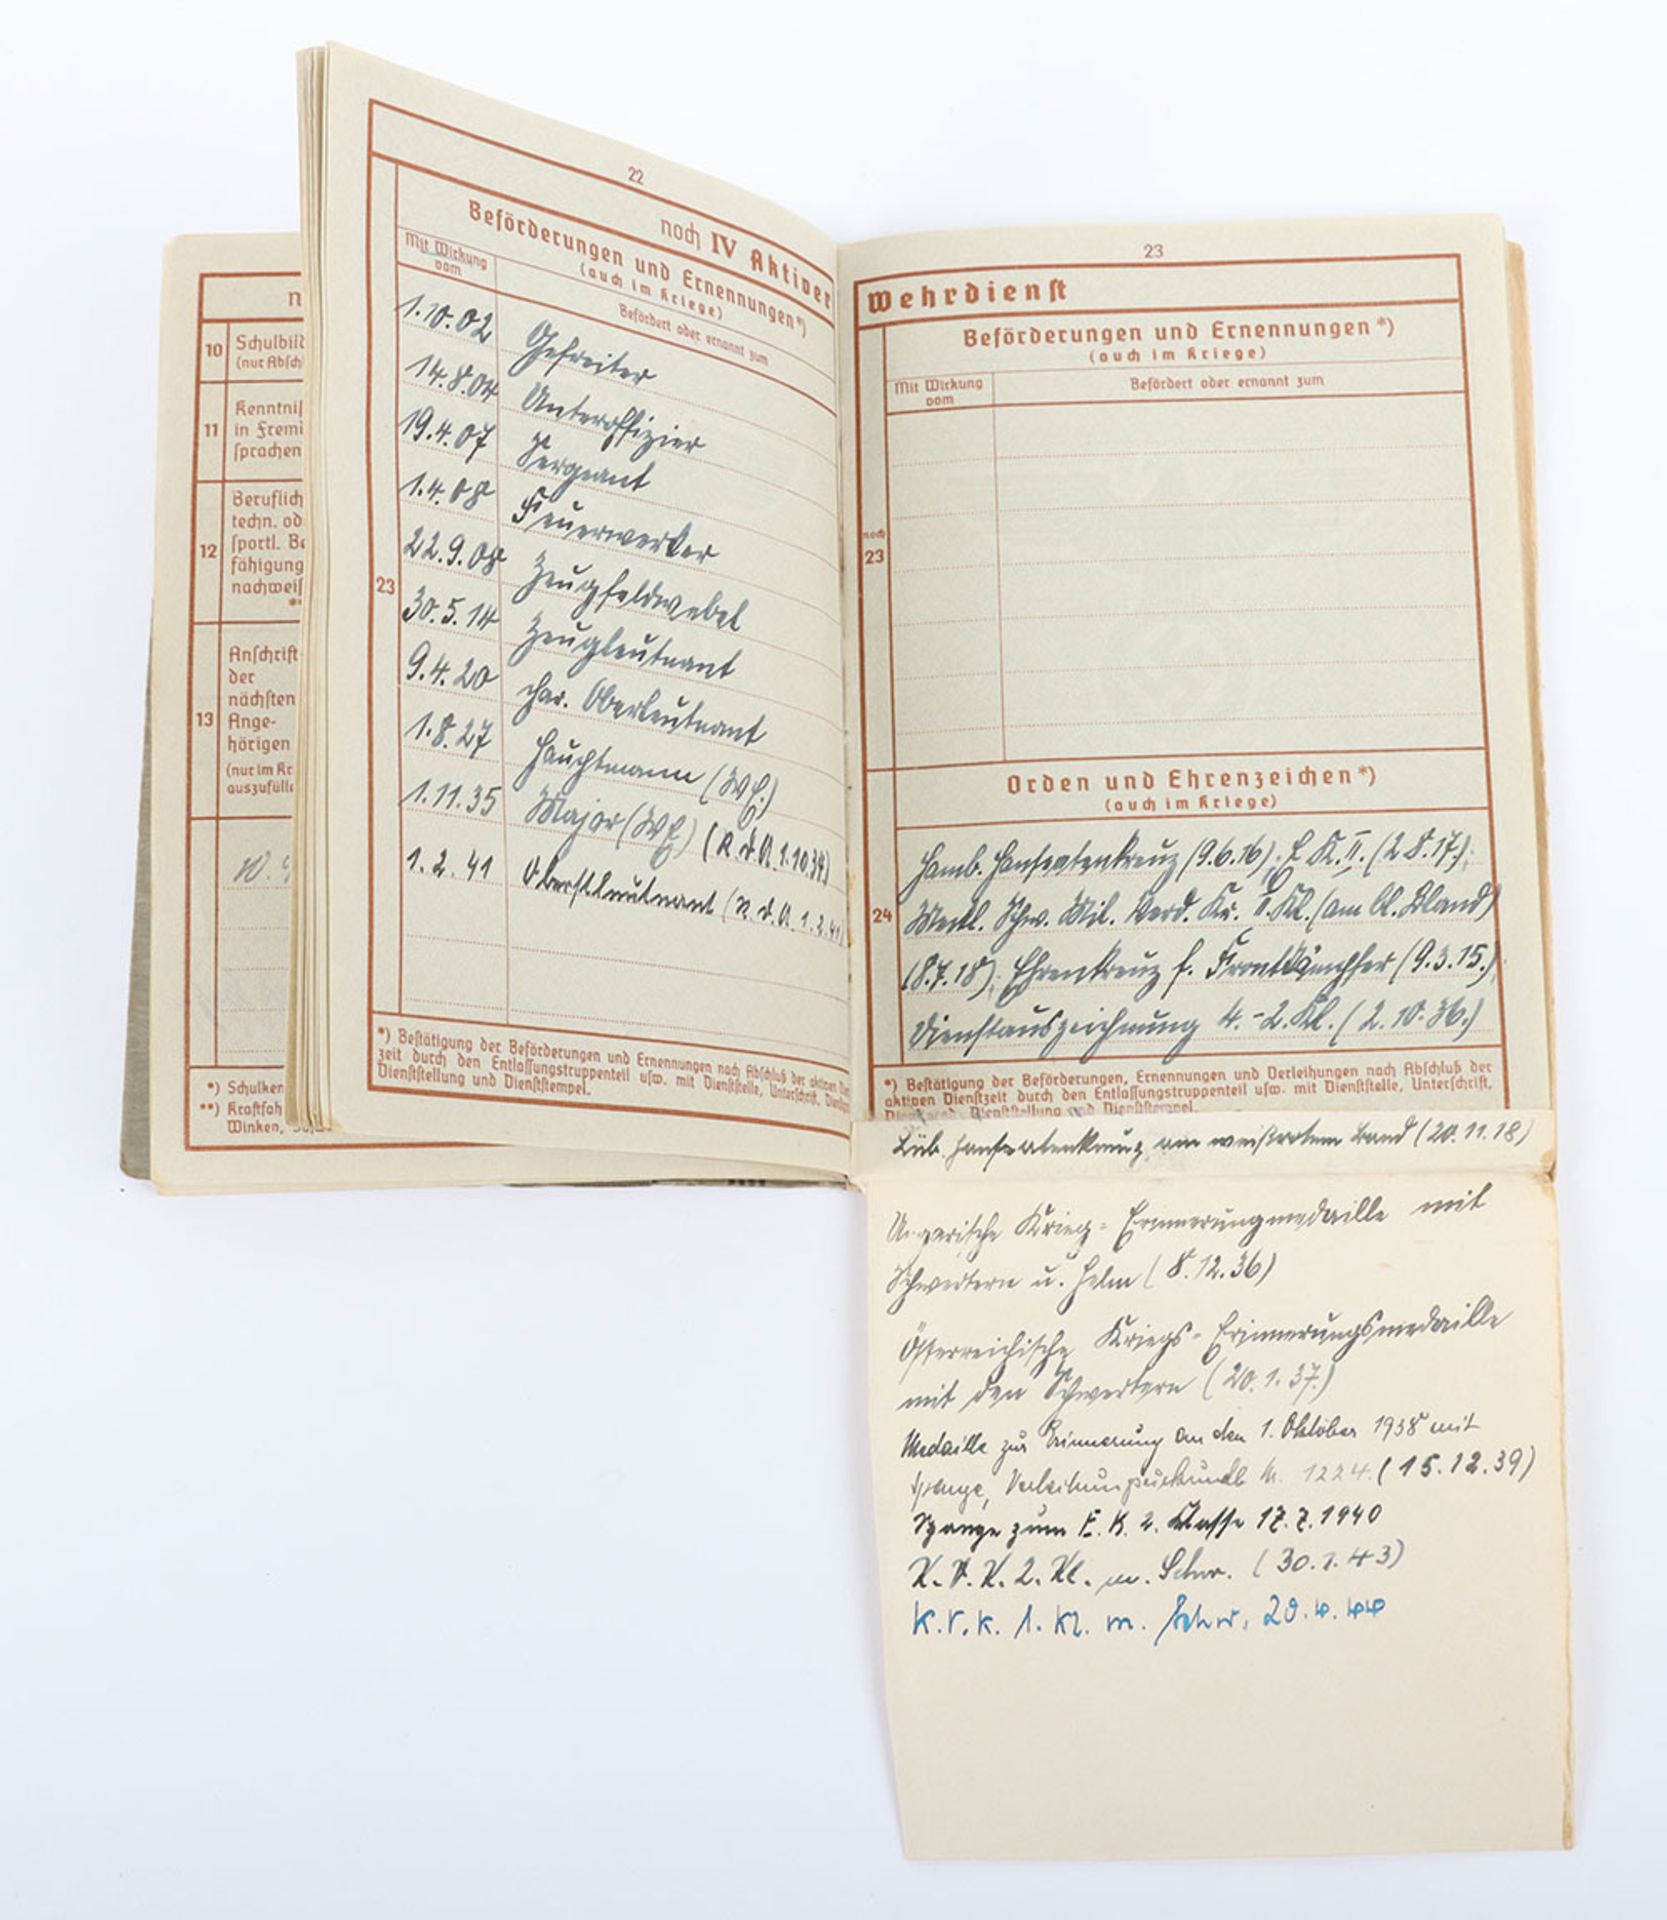 n
10 Schulbild
(nur Absch
11 Kenntnis
in Fremd
sprachen
12 Beruflich
techn. od
sportl. Be
fähigung
nachweis
**
13 Anschrift
der
nächsten
Ange-
hörigen
(nur im Kr
auszufülle
*) Schulken
**) Kraftfah
Winken,
22
noch IV Aktiver
Beförderungen und Ernennungen*)
(auch im Kriege)
Mit Wirkung vom
Befördert oder ernannt zum
23
1.10.02 Gefreiter
14.8.04 Unteroffizier
19.4.07 Sergeant
1.4.08 Feuerwerker
22.9.08 Zeugfeldwebel
30.5.14 Zeugleutnant
9.4.20 char. Oberleutnant
1.8.27 Hauptmann (W)
1.11.35 Major (W) (R.d.A. 1.10.34)
1.2.41 Oberstleutnant (R.d.A. 1.2.41)
*) Bestätigung der Beförderungen und Ernennungen nach Abschluß der aktiven Dien
zeit durch den Entlassungstruppenteil usw. mit Dienststelle, Unterschrift, Dienst
Dienststellung und Dienststempel.
23
Wehrdienst
Beförderungen und Ernennungen*)
(auch im Kriege)
Mit Wirkung vom
Befördert oder ernannt zum
noch
23
Orden und Ehrenzeichen*)
(auch im Kriege)
24
Hamb. Hanseatenkreuz (9.6.16). E.K. II. (2.8.17).
Meckl. Schw. Mil. Verd. Kr. II. Kl. (am bl. Band)
(8.7.18). Ehrenkreuz f. Frontkämpfer (9.3.15.)
Dienstauszeichnung 4.-2. Kl. (2.10.36.)
*) Bestätigung der Beförderungen, Ernennungen und Verleihungen nach Abschluß der
aktiven Dienstzeit durch den Entlassungstruppenteil usw. mit Dienststelle, Unterschrift,
Dienstgrad, Dienststellung und Dienststempel.
Lüb. Hanseatenkreuz am weißrotem Band (20.11.18)
Ungarische Krieg-Erinnerungmedaille mit
Schwertern u. Helm (8.12.36)
Österreichische Kriegs-Erinnerungsmedaille
mit den Schwertern (20.1.37.)
Medaille zur Erinnerung an den 1. Oktober 1938 mit
Spange, Verleihungsurkunde Nr. 1224. (15.12.39)
Spange zum E.K. 2. Klasse 17.7.1940
K.V.K. 2. Kl. m. Schw. (30.1.43)
K.V.K. 1. Kl. m. Schw. 20.4.44